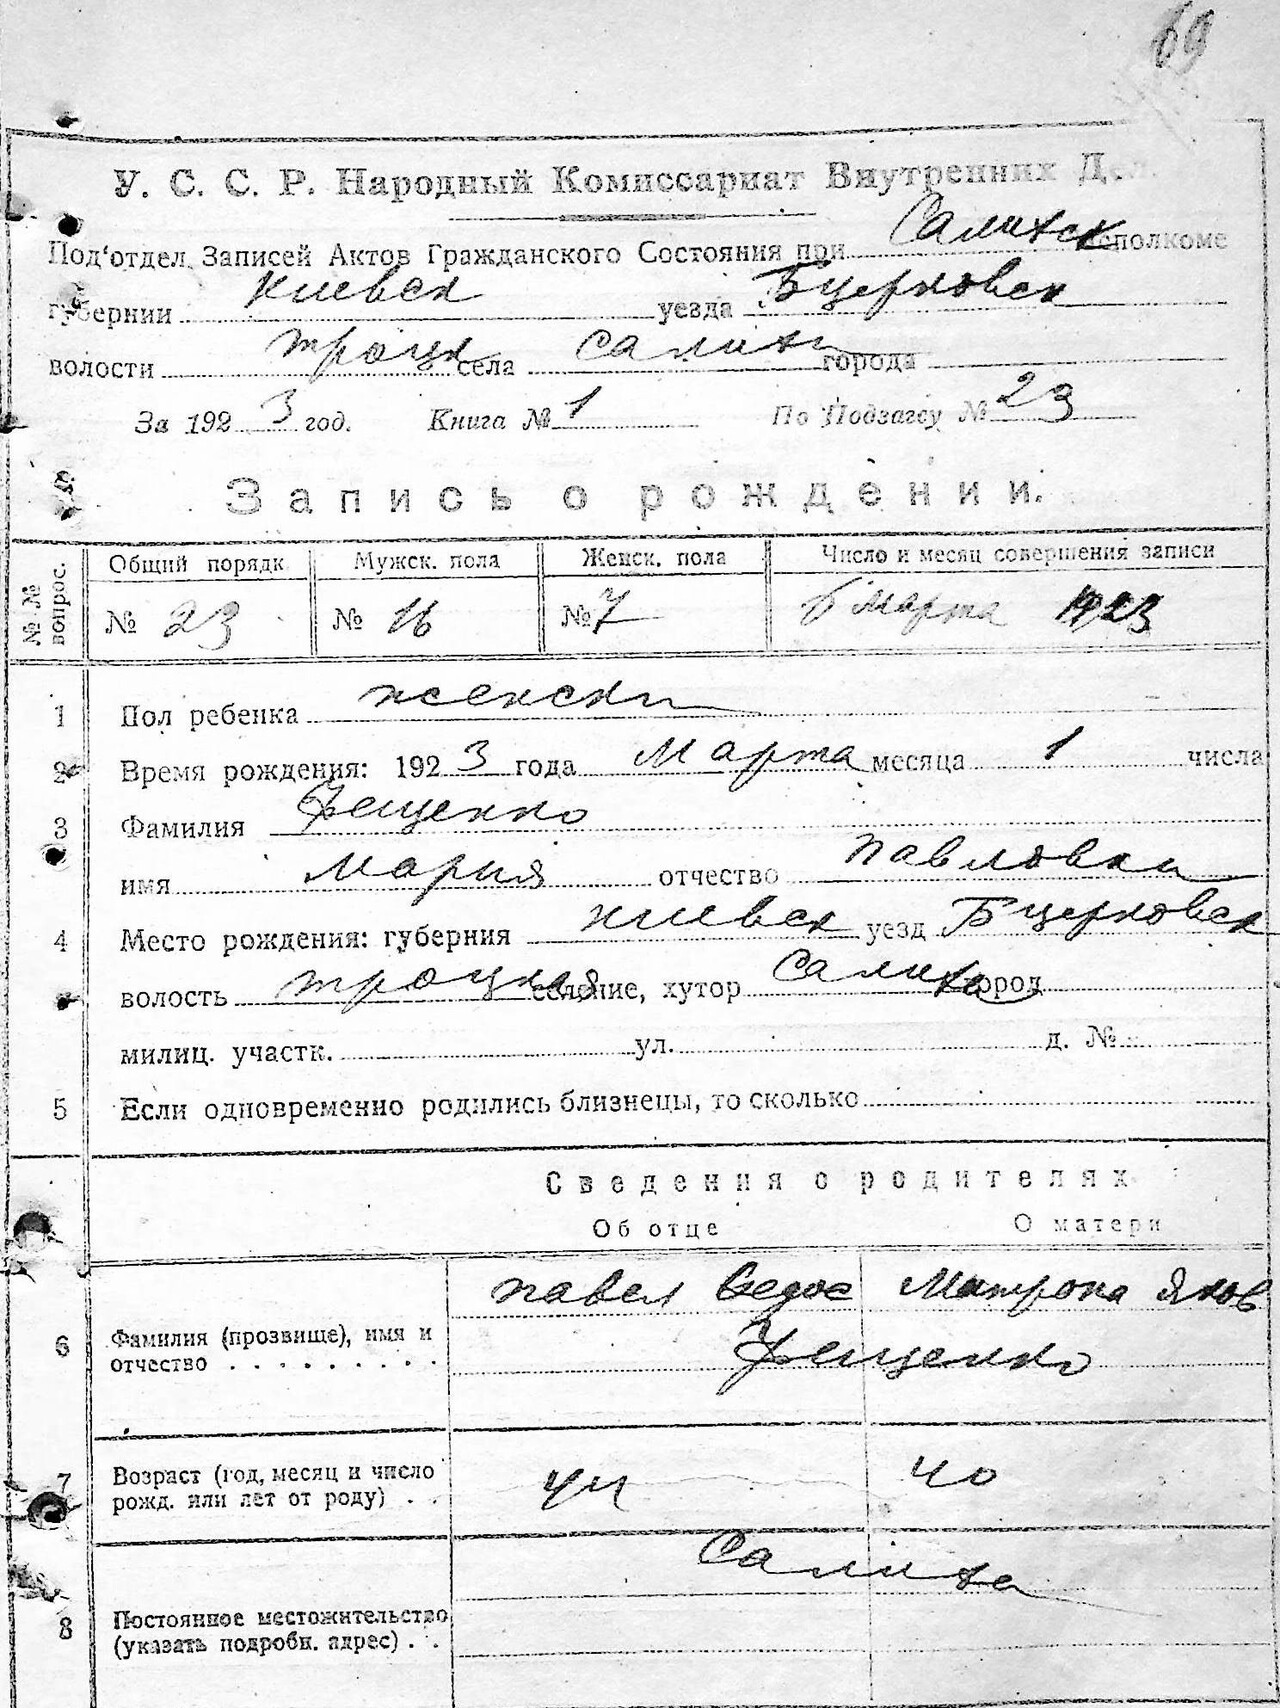 69
У. С. С. Р. Народный Комиссариат Внутренних Дел.
Под'отдел Записей Актов Гражданского Состояния при Салихск исполкоме
губернии Киевск уезда Бцерковск
волости Троцк села Салихи города
За 1923 год. Книга № 1 По Подзагсу № 23
Запись о рождении.
№№ вопрос. Общий порядк. Мужск. пола Женск. пола Число и месяц совершения записи
№ 23 № 16 № 7 6 Марта 1923
1 Пол ребенка женски
2 Время рождения: 1923 года Марта месяца 1 числа
3 Фамилия Фещенко
имя Мария отчество Павловна
4 Место рождения: губерния Киевск уезд Бцерковск
волость Троцкая селение, хутор Салиха город
милиц. участк. ул. д. №
5 Если одновременно родились близнецы, то сколько
Сведения о родителях.
Об отце О матери
Павел Федос Матрона Яков
6 Фамилия (прозвище), имя и
отчество . . . . . . . . . . Фещенко
7 Возраст (год, месяц и число
рожд. или лет от роду) . . 40
Салиха
8 Постоянное местожительство
(указать подробн. адрес) . .